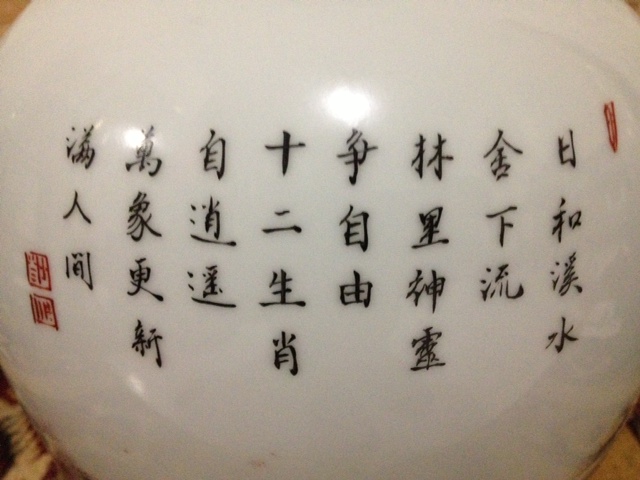 日和溪水
舍下流
林里神靈
争自由
十二生肖
自逍遥
萬象更新
满人間